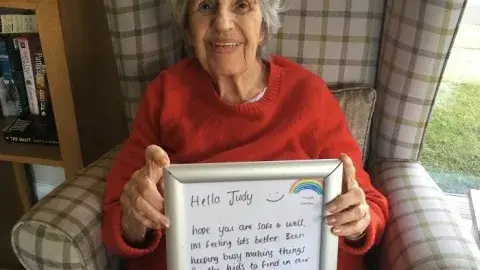 Hello Judy :)
hope you are safe & well,
Im feeling lots better. Been
keeping busy making things
for the kids to find on our